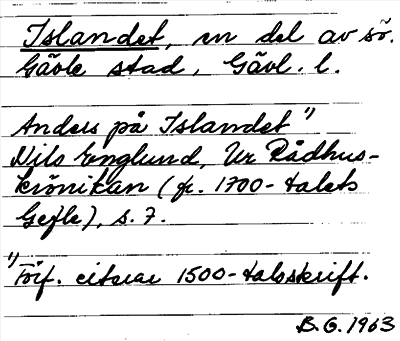 Islandet, en del av sö.
Gävle stad, Gävl. l.
Anders på Islandet "1)
Nils Englund, Ur Rådhus-
krönikan (fr. 1700-talets
Gefle), s. 7.
1) Förf. citerar 1500-talsskrift.
B.G. 1963